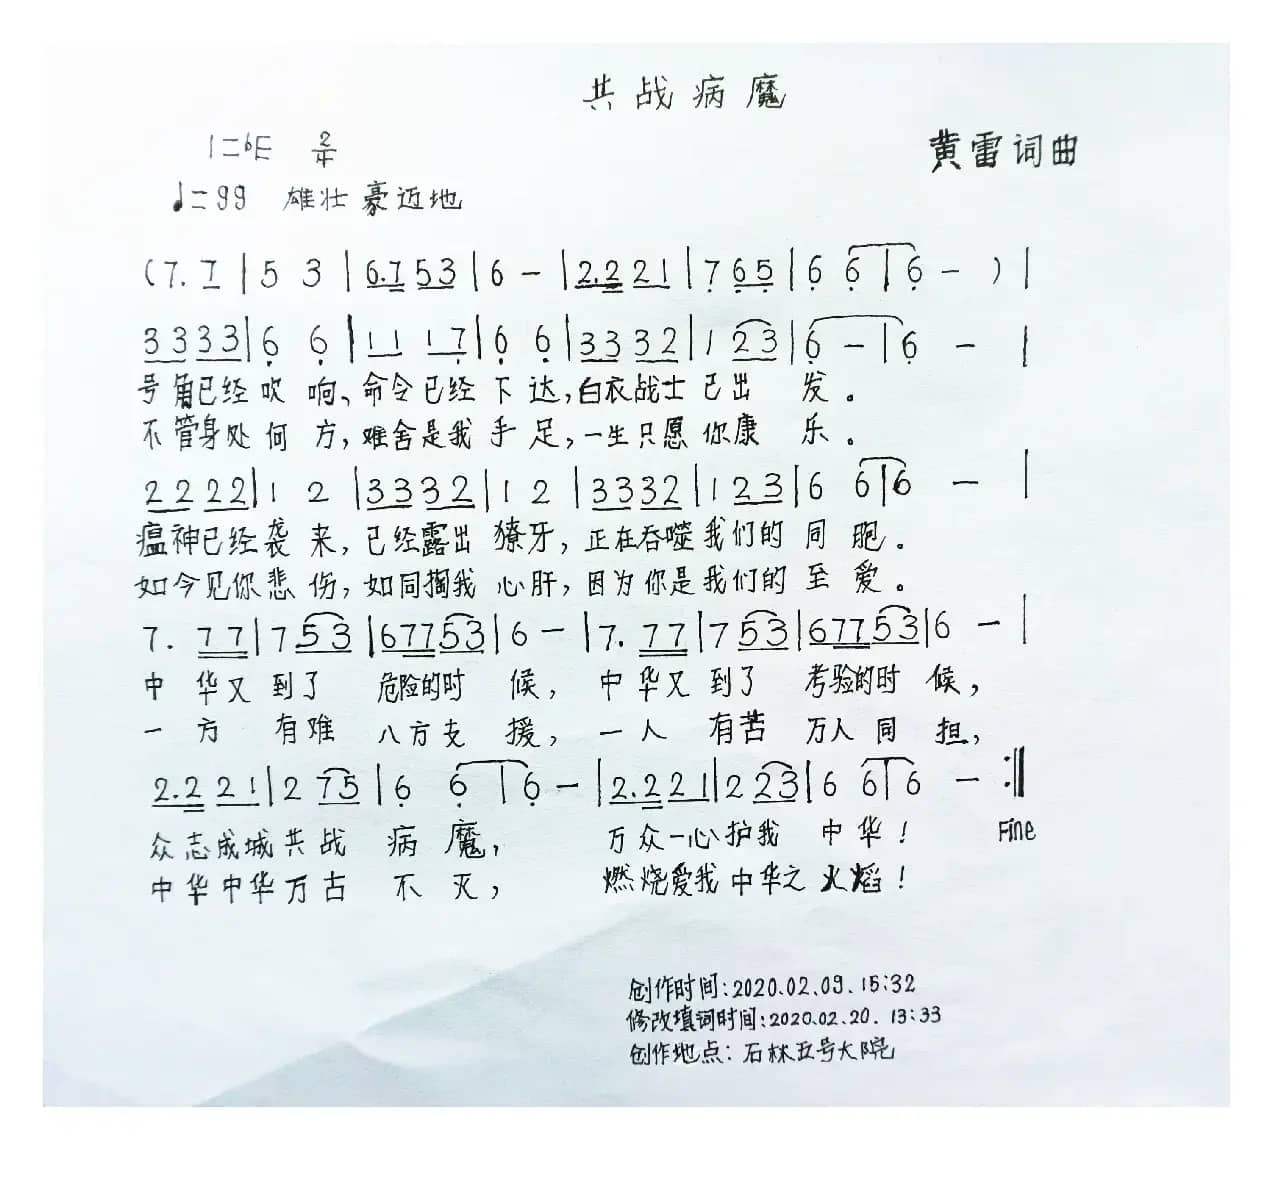 共战病魔
1=♭E 2/4
黄雷词曲
♩=99 雄壮豪迈地
(7. 7 | 5 3 | 6.7 53 | 6 - | 2.2 21 | 7 65 | 6 6 | 6 - ) |
33 33 | 6 6 | 11 17 | 6 6 | 33 32 | 1 23 | 6 - | 6 - |
号角已经吹响、命令已经下达,白衣战士已出发。
不管身处何方,难舍是我手足,一生只愿你康乐。
22 22 | 1 2 | 33 32 | 1 2 | 33 32 | 1 23 | 6 6 | 6 - |
瘟神已经袭来,已经露出獠牙,正在吞噬我们的同胞。
如今见你悲伤,如同掏我心肝,因为你是我们的至爱。
7. 77 | 7 53 | 677 53 | 6 - | 7. 77 | 7 53 | 677 53 | 6 - |
中华又到了危险的时候,中华又到了考验的时候,
一方有难八方支援,一人有苦万人同担,
2.2 21 | 2 75 | 6 6 | 6 - | 2.2 21 | 2 23 | 6 6 | 6 - :||
众志成城共战病魔,万众一心护我中华! Fine
中华中华万古不灭,燃烧爱我中华之火焰!
创作时间:2020.02.09.15:32
修改填词时间:2020.02.20.13:33
创作地点:石林五号大院